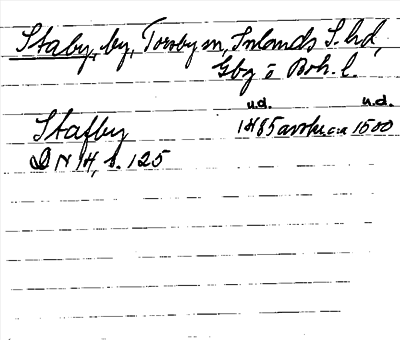 Staby, by, Torsby sn, Inlands S. hd,
Gbg o Boh. l.
u.d. u.d.
Stafby 1485 avskr. ca 1500
DN IH, s. 125